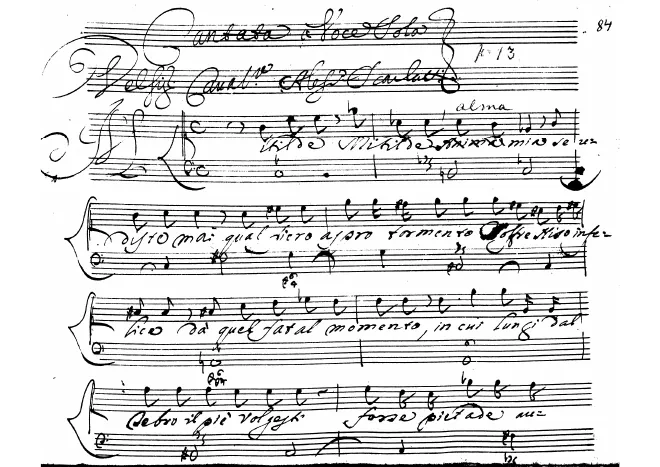 Cantata à Voce Sola
84
13
Del Sig.r Caval.re Aless.o Scarlatti
alma
Mitilde Mitilde Anima mia se u=
diste mai qual fiero aspro tormento soffre Niso infe=
lice da quel fatal momento, in cui lungi dal
Tebro il piè volgesti forse pietade au=